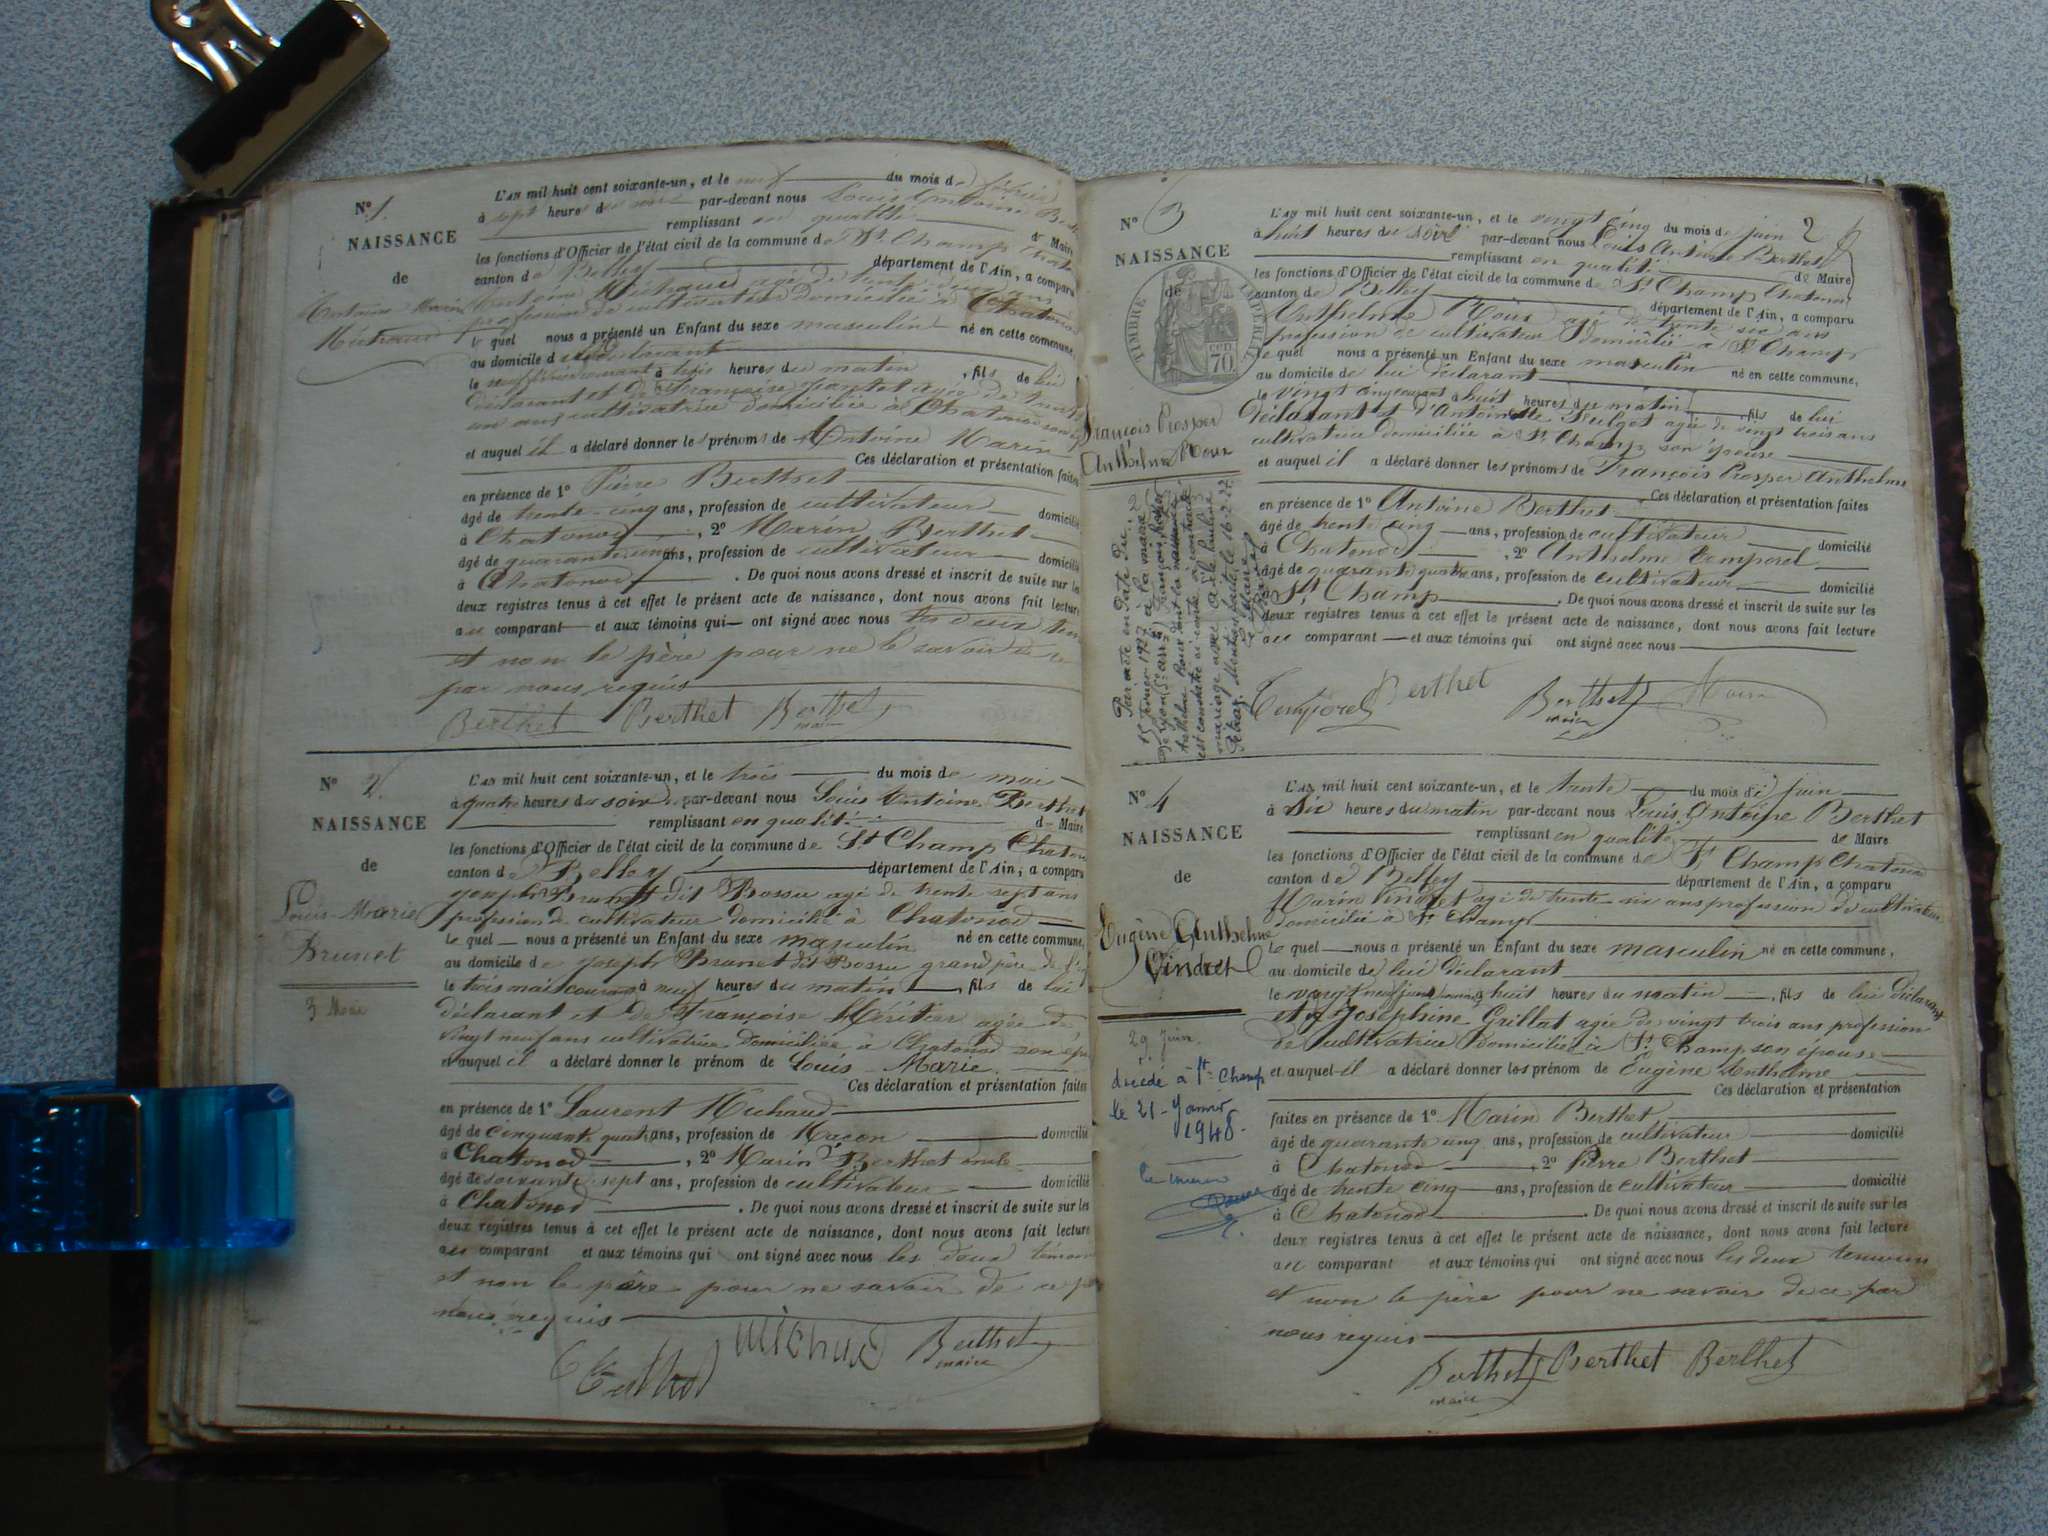 N° 1.
NAISSANCE
de
Antoine Marin
Michaud
L'AN mil huit cent soixante-un, et le neuf du mois de février
à sept heures du soir par-devant nous Louis Antoine
remplissant en qualité de Maire
les fonctions d'Officier de l'état civil de la commune de St Champ
canton de Belley département de l'Ain, a comparu
Antoine Michaud agé de trente deux ans
profession de cultivateur domicilié à Chatonod
le quel nous a présenté un Enfant du sexe masculin né en cette commune,
au domicile de déclarant
le neuf février courant à trois heures du matin, fils de lui
déclarant et de Françoise agée de trente
un ans cultivatrice domiciliée à Chatonod
et auquel il a déclaré donner les prénoms de Antoine Marin
Ces déclaration et présentation faites
en présence de 1° Pierre Berthet
âgé de trente-cinq ans, profession de cultivateur domicilié
à Chatonod, 2° Marin Berthet
âgé de quarante cinq ans, profession de cultivateur domicilié
à Chatonod. De quoi nous avons dressé et inscrit de suite sur les
deux registres tenus à cet effet le présent acte de naissance, dont nous avons fait lecture
au comparant et aux témoins qui ont signé avec nous
et non le père pour ne le savoir de ce
par nous requis
Berthet Berthet Berthet
maire
N° 2.
NAISSANCE
de
Louis-Marie
Brunet
3 Mai
L'AN mil huit cent soixante-un, et le trois du mois de mai
à quatre heures du soir par-devant nous Louis Antoine Berthet
remplissant en qualité de Maire
les fonctions d'Officier de l'état civil de la commune de St Champ Chaton
canton de Belley département de l'Ain, a comparu
Joseph Brunet dit Bossu agé de trente sept ans
profession de cultivateur domicilié à Chatonod
le quel nous a présenté un Enfant du sexe masculin né en cette commune,
au domicile de Joseph Brunet dit Bossu grand père de
le trois mai courant à neuf heures du matin, fils de lui
déclarant et de Françoise Héritier agée de
vingt neuf ans cultivatrice domiciliée à Chatonod son
et auquel il a déclaré donner le prénom de Louis-Marie.
Ces déclaration et présentation faites
en présence de 1° Laurent Michaud
âgé de cinquante quatre ans, profession de Maçon domicilié
à Chatonod, 2° Marin Berthet oncle
âgé de soixante-sept ans, profession de cultivateur domicilié
à Chatonod. De quoi nous avons dressé et inscrit de suite sur les
deux registres tenus à cet effet le présent acte de naissance, dont nous avons fait lecture
au comparant et aux témoins qui ont signé avec nous les deux témoins
et non le père pour ne savoir de ce
nous requis
Michaud Berthet
maire
2
N° 3
NAISSANCE
de
TIMBRE IMPERIAL
70 cen.
François Prosper
Anthelme Roux
L'AN mil huit cent soixante-un, et le vingt cinq du mois de juin
à huit heures du soir par-devant nous Louis Antoine Berthet
remplissant en qualité de Maire
les fonctions d'Officier de l'état civil de la commune de St Champ Chatonod
canton de Belley département de l'Ain, a comparu
Anthelme Roux agé de trente six ans
profession de cultivateur domicilié à St Champ
le quel nous a présenté un Enfant du sexe masculin né en cette commune,
au domicile de lui déclarant
le vingt cinq courant à huit heures du matin fils de lui
déclarant et d'Antoinette agée de vingt trois ans
cultivatrice domiciliée à St Champ son épouse
et auquel il a déclaré donner les prénoms de François Prosper Anthelme
Ces déclaration et présentation faites
en présence de 1° Antoine Berthet
âgé de trente cinq ans, profession de cultivateur domicilié
à Chatonod, 2° Anthelme Temporel
âgé de quarante quatre ans, profession de cultivateur domicilié
à St Champ. De quoi nous avons dressé et inscrit de suite sur les
deux registres tenus à cet effet le présent acte de naissance, dont nous avons fait lecture
au comparant et aux témoins qui ont signé avec nous
Temporel Berthet Berthet Roux
maire
Par acte en date du
15 février 1927 à la mairie
de Lyon 3e arr.
Anthelme Roux dont la naissance
est constatée ci-contre a contracté
mariage avec
N° 4
NAISSANCE
de
Eugène Anthelme
Vindret
29 Juin.
décédé à St-Champ
le 21-Janvier
1948.
Le maire
L'AN mil huit cent soixante-un, et le trente du mois de juin
à six heures du matin par-devant nous Louis Antoine Berthet
remplissant en qualité de Maire
les fonctions d'Officier de l'état civil de la commune de St Champ Chatonod
canton de Belley département de l'Ain, a comparu
Marin Vindret agé de trente-six ans profession de cultivateur
domicilié à St Champ
le quel nous a présenté un Enfant du sexe masculin né en cette commune,
au domicile de lui déclarant
le vingt neuf juin à huit heures du matin, fils de lui déclarant
et de Joséphine Grillat agée de vingt trois ans profession
de cultivatrice domiciliée à St Champ son épouse
et auquel il a déclaré donner les prénom de Eugène Anthelme
Ces déclaration et présentation
faites en présence de 1° Marin Berthet
âgé de quarante cinq ans, profession de cultivateur domicilié
à Chatonod, 2° Pierre Berthet
âgé de trente cinq ans, profession de cultivateur domicilié
à Chatonod. De quoi nous avons dressé et inscrit de suite sur les
deux registres tenus à cet effet le présent acte de naissance, dont nous avons fait lecture
au comparant et aux témoins qui ont signé avec nous les deux temoins
et non le père pour ne savoir de ce par
nous requis
Berthet Berthet Berthet
maire